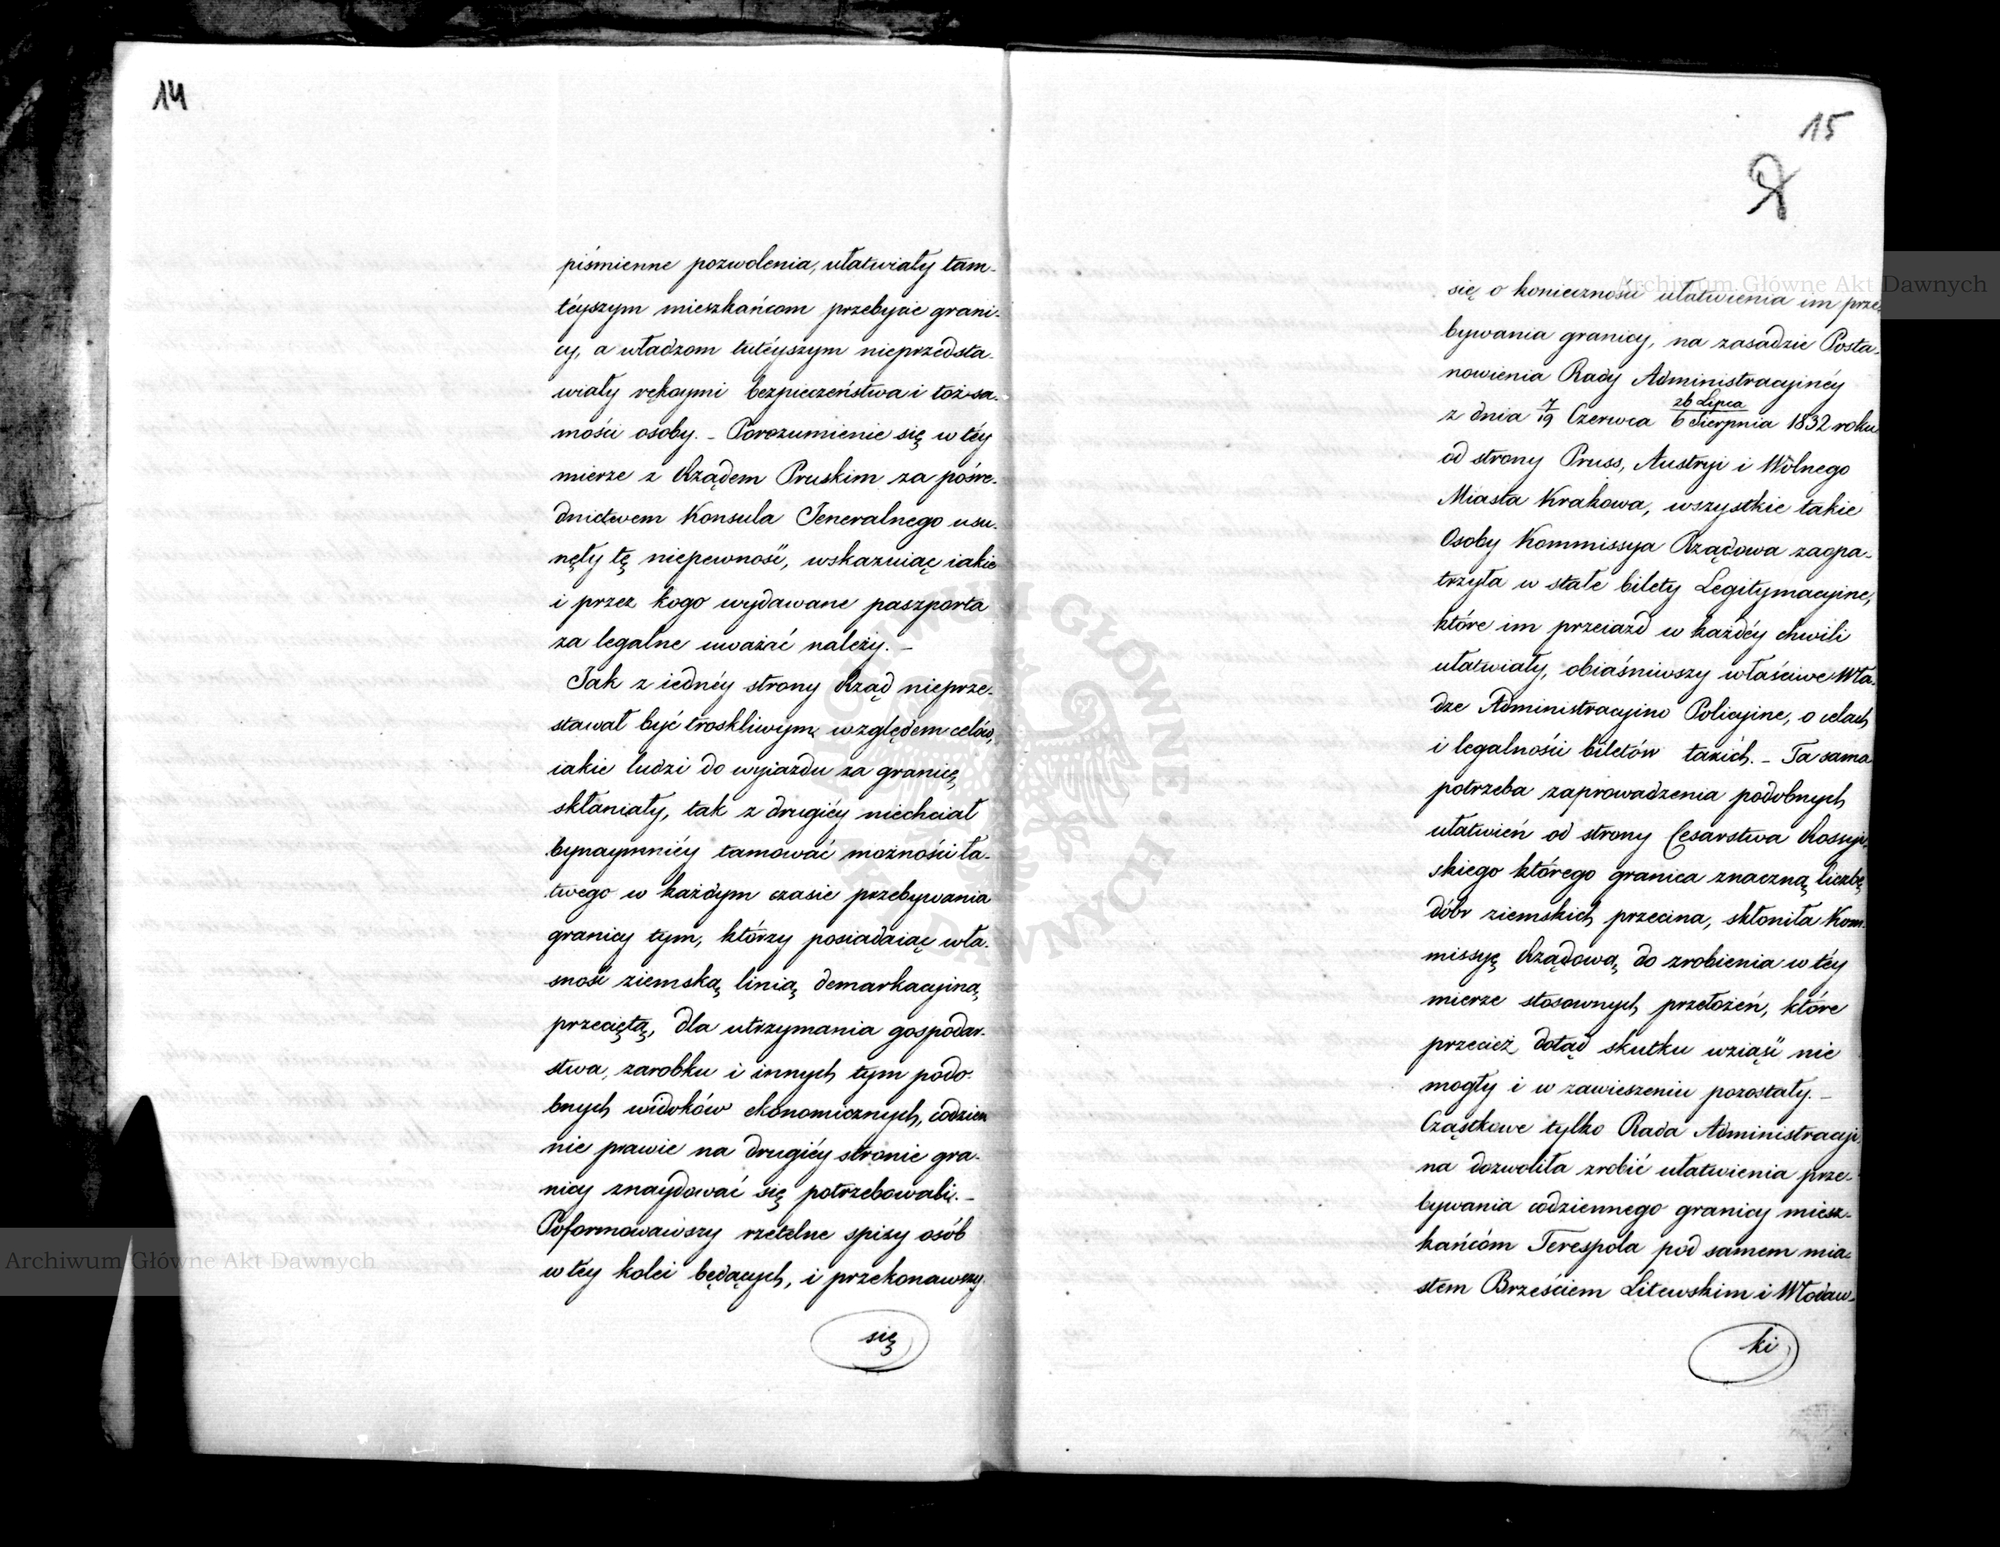 14
piśmienne pozwolenia, ułatwiały tam-
téyszym mieszkańcom przebycie grani-
cy, a władzom tutéyszym nieprzedsta-
wiały rękoymi bezpieczeństwa i tożsa-
mości osoby. – Porozumienie się w téy
mierze z Rządem Pruskim za pośre-
dnictwem Konsula Jeneralnego usu-
nęły tę niepewność, wskazuiąc iakie
i przez kogo wydawane paszporta
za legalne uważać należy. –
Jak z iednéy strony Rząd nieprze-
stawał być troskliwym względem celów,
iakie ludzi do wyiazdu za granicę
skłaniały, tak z drugiéy niechciał
bynaymniéy tamować możności ła-
twego w każdym czasie przebywania
granicy tym, którzy posiadaiąc wła-
sność ziemską linią demarkacyiną
przeciętą, dla utrzymania gospodar-
stwa, zarobku i innych tym podo-
bnych widoków ekonomicznych, codzien
nie prawie na drugiéy stronie gra-
nicy znaydować się potrzebowali. –
Poformowawszy rzetelne spisy osób
w téy kolei będących, i przekonawszy
się
15
się o konieczności ułatwienia im prze-
bywania granicy, na zasadzie Posta-
nowienia Rady Administracyinéy
z dnia 7/19 Czerwca 26 Lipca/6 Sierpnia 1832 roku
od strony Pruss, Austryi i Wolnego
Miasta Krakowa, wszystkie takie
Osoby Kommissya Rządowa zaopa-
trzyła w stałe bilety Legitymacyine,
które im przeiazd w każdéy chwili
ułatwiały, obiaśniwszy właściwe Wła-
dze Administracyino Policyine, o celach
i legalności biletów takich. – Ta sama
potrzeba zaprowadzenia podobnych
ułatwień od strony Cesarstwa Rossyi-
skiego którego granica znaczną liczbę
dóbr ziemskich przecina, skłoniła Kom-
missyę Rządową do zrobienia w téy
mierze stosownych przełożeń, które
przecież dotąd skutku wziąść nie
mogły i w zawieszeniu pozostały. –
Cząstkowe tylko Rada Administracyi-
na dozwoliła zrobić ułatwienia prze-
bywania codziennego granicy miesz-
kańcóm Terespola pod samem mia-
stem Brześciem Litewskim i Włodaw-
ki
Archiwum Główne Akt Dawnych
Archiwum Główne Akt Dawnych
ARCHIWUM GŁÓWNE AKT DAWNYCH